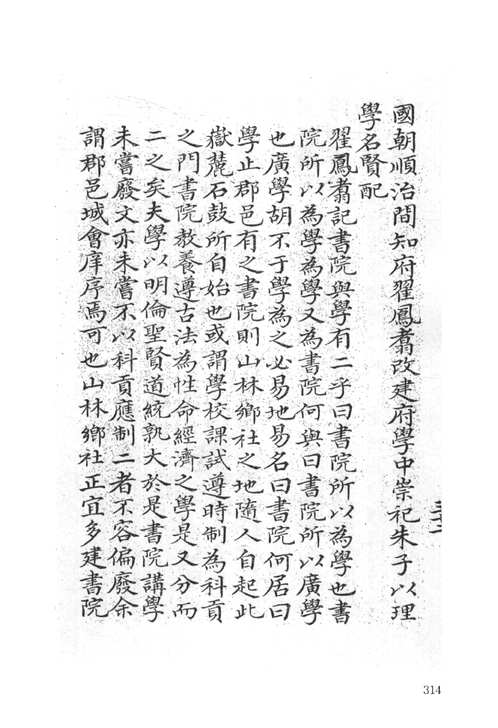 國朝順治間知府翟鳳翥改建府學中崇祀朱子以理
學名賢配
翟鳳翥記書院與學有二乎曰書院所以為學也書
院所以為學為學又為書院何與曰書院所以廣學
也廣學胡不于學為之必易地易名曰書院何居曰
學止郡邑有之書院則山林鄉社之地隨人自起此
嶽麓石鼓所自始也或謂學校課試遵時制為科貢
之門書院教養遵古法為性命經濟之學是又分而
二之矣夫學以明倫聖賢道統孰大於是書院講學
未嘗廢文亦未嘗不以科貢應制二者不容偏廢余
謂郡邑城會庠序焉可也山林鄉社正宜多建書院
314